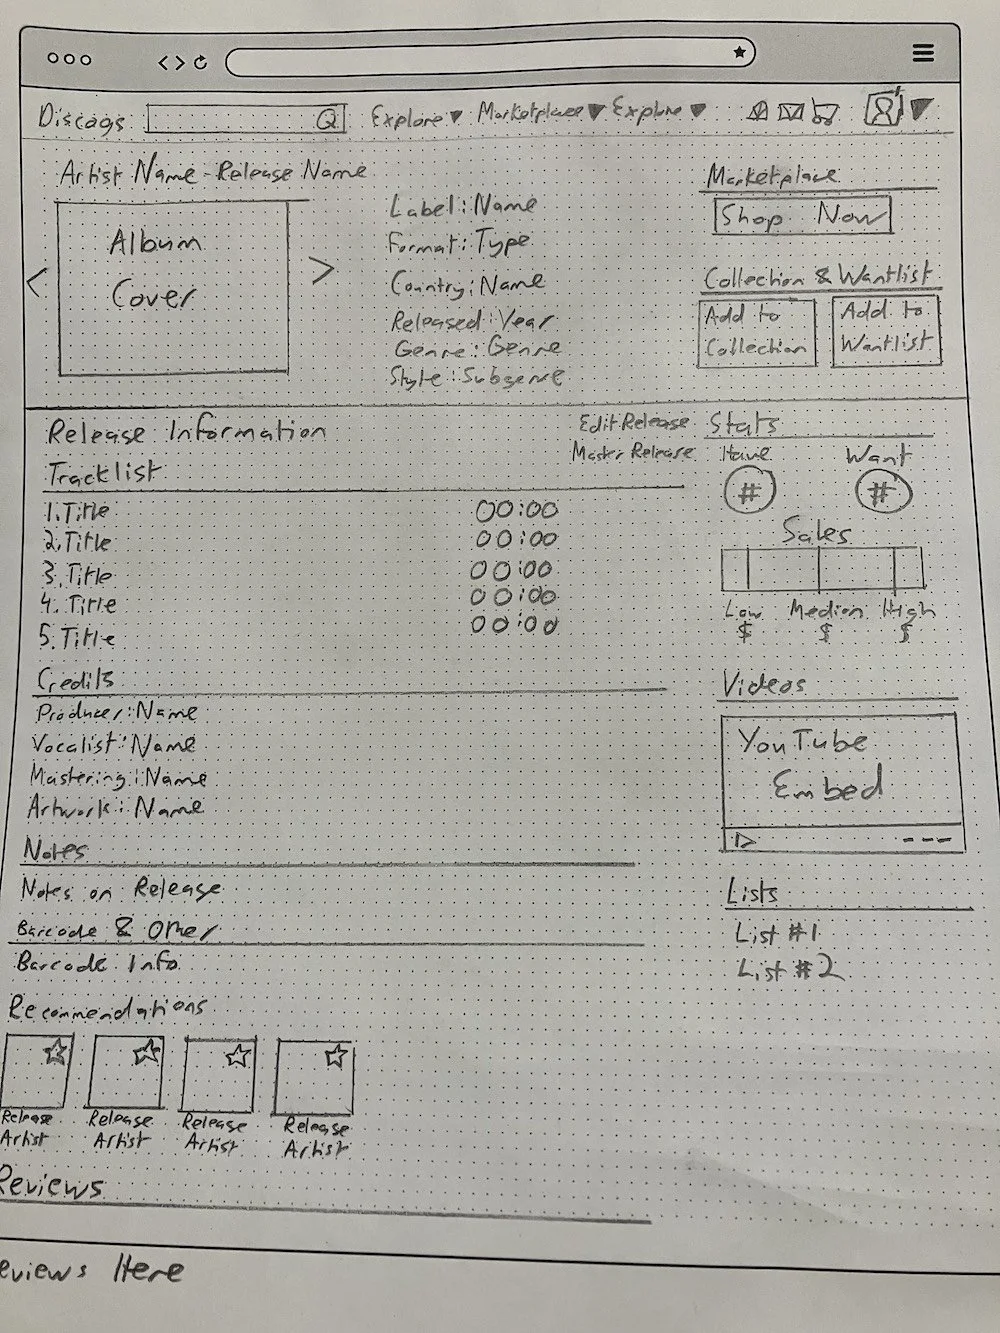 Discogs Explore Marketplace Explore
Artist Name - Release Name
Album
Cover
Label: Name
Format: Type
Country: Name
Released: Year
Genre: Genre
Style: Subgenre
Marketplace
Shop Now
Collection & Wantlist
Add to
Collection
Add to
Wantlist
Release Information
Edit Release
Master Release
Tracklist
1. Title 00:00
2. Title 00:00
3. Title 00:00
4. Title 00:00
5. Title 00:00
Credits
Producer: Name
Vocalist: Name
Mastering: Name
Artwork: Name
Notes
Notes on Release
Barcode & Other
Barcode Info
Recommendations
Release
Artist
Release
Artist
Release
Artist
Release
Artist
Reviews
eviews Here
Stats
Have Want
# #
Sales
Low Median High
$ $ $
Videos
YouTube
Embed
Lists
List #1
List #2